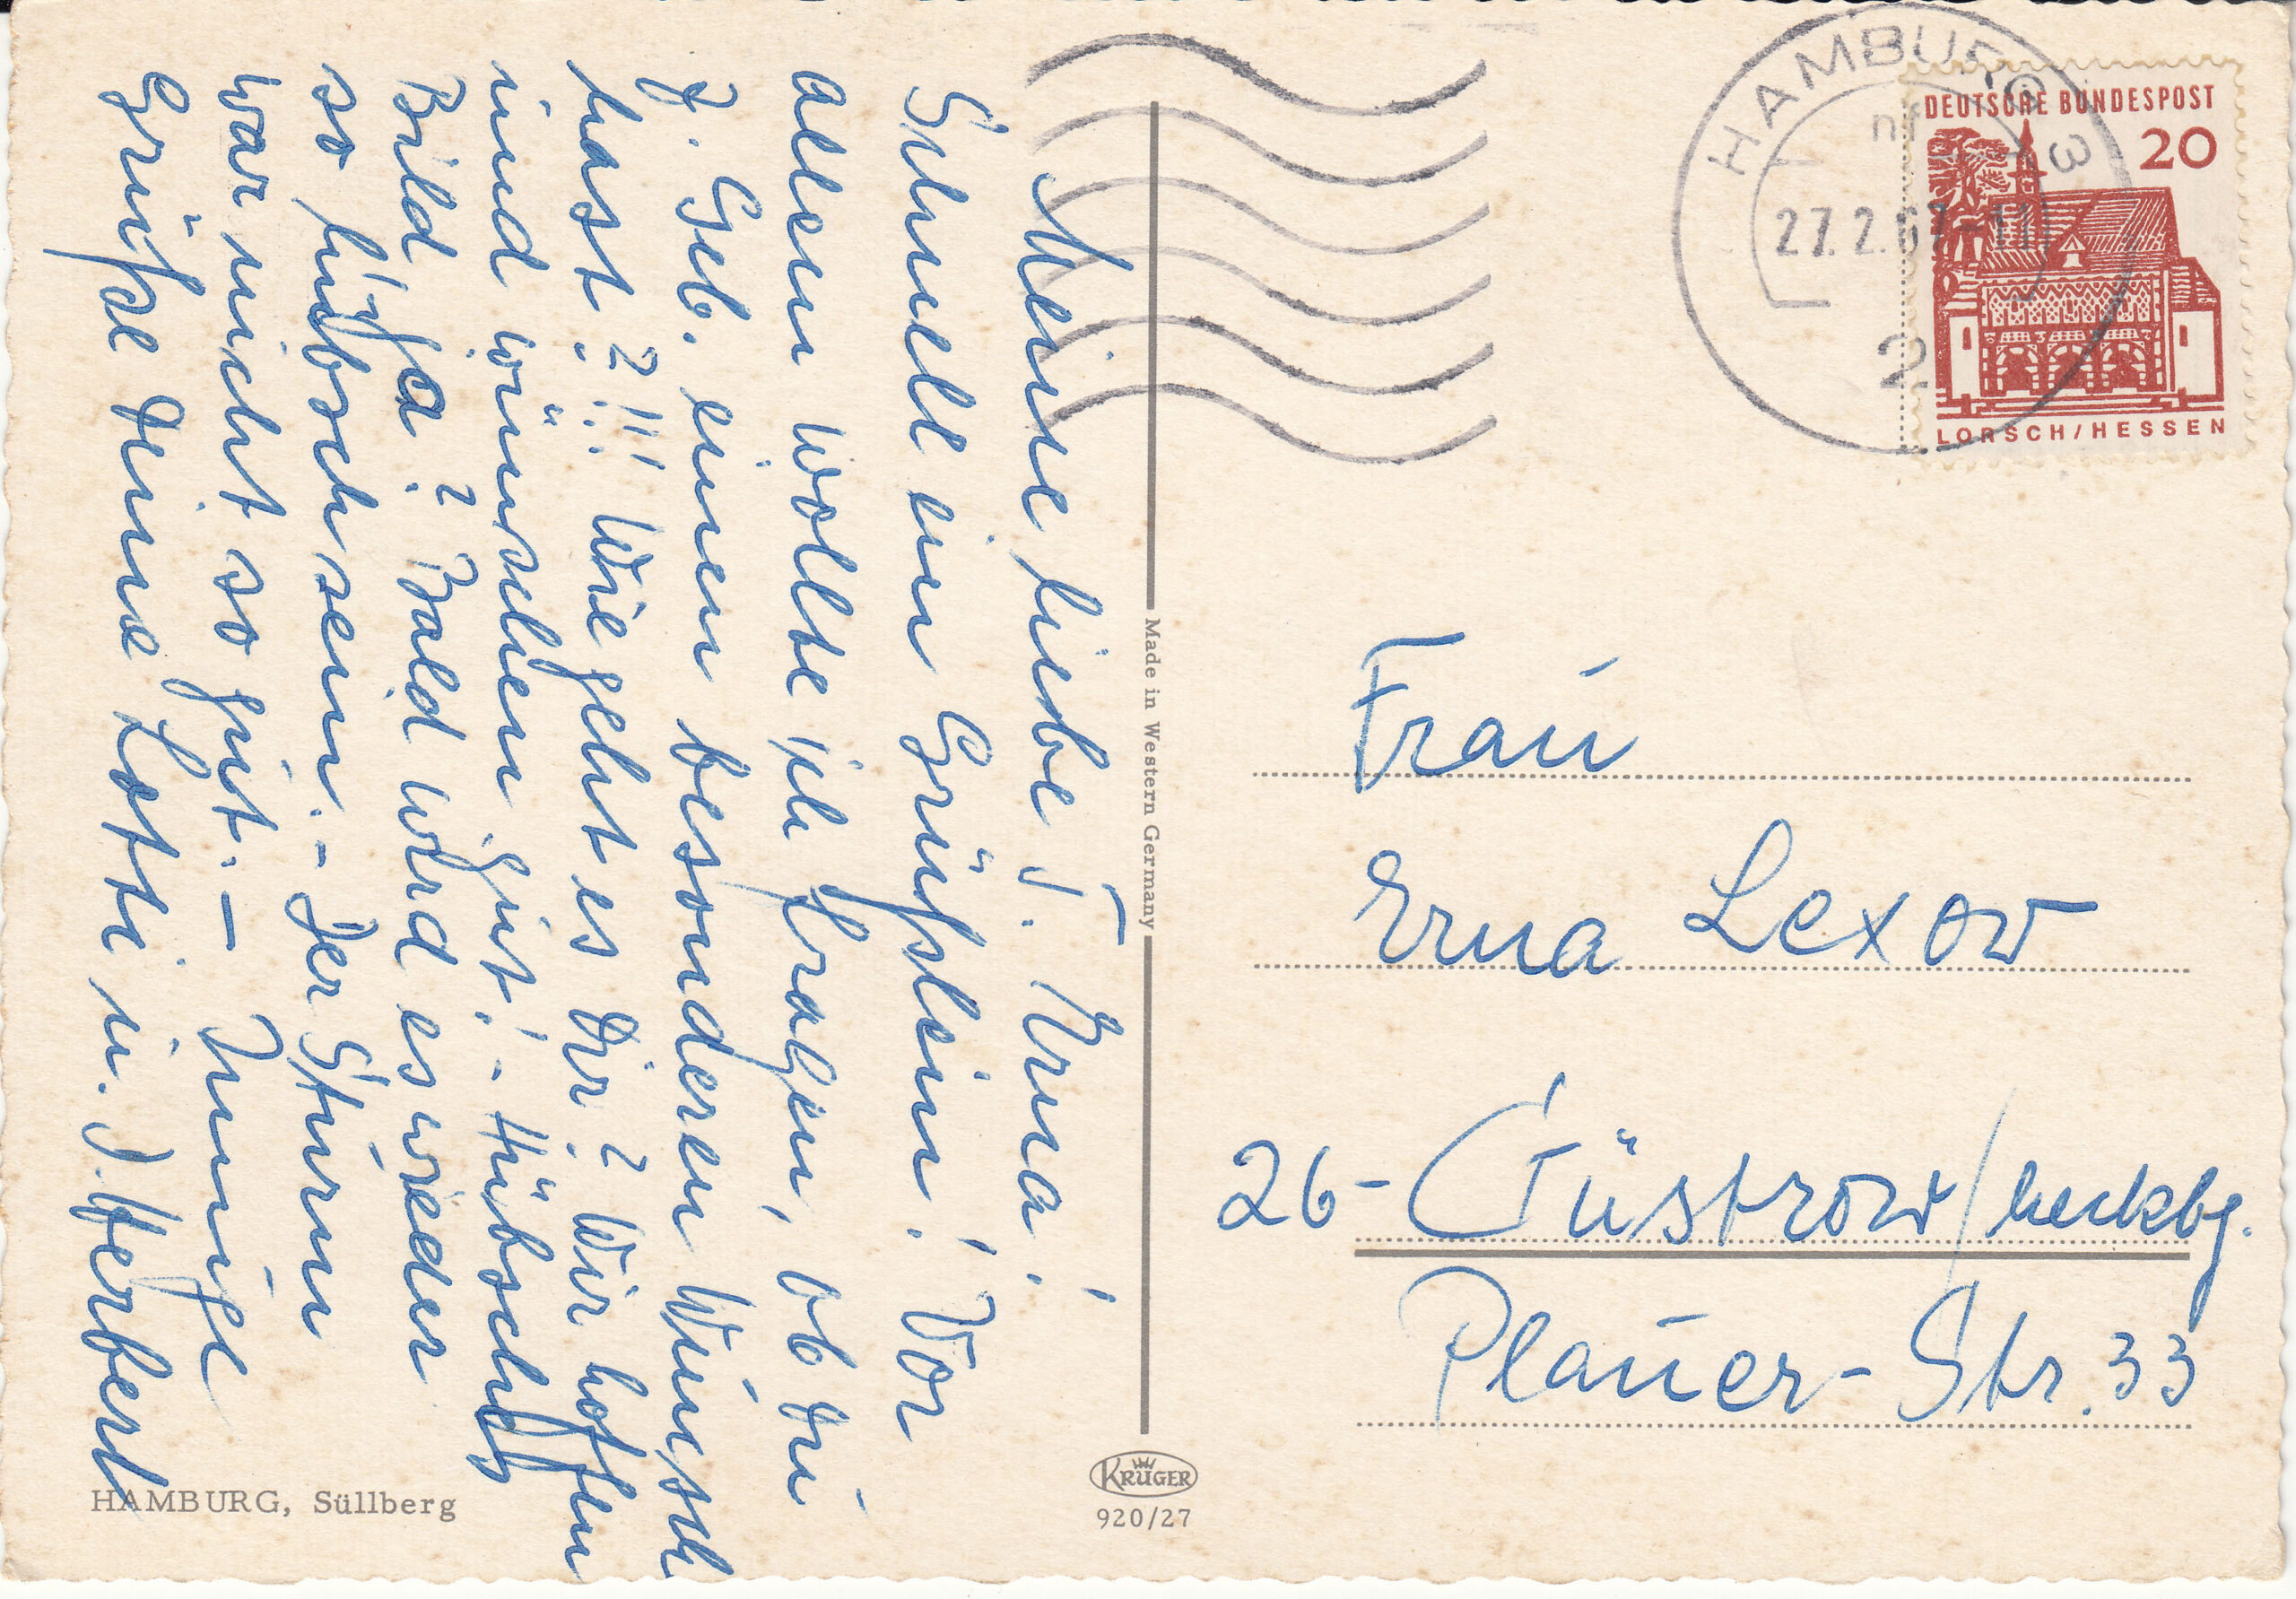 Meine liebe T. Erna!
Schnell ein Grüßlein! Vor
allem wollte ich fragen, ob Du
z. Geb. einen besonderen Wunsch
hast?!!! Wie geht es Dir? Wir hoffen
und wünschen gut! - Hübsches
Bild, ja? Bald wird es wieder
so hübsch sein. - Der Sturm
war nicht so gut. - Innige
Grüße Deine Lotti u. Herbert
HAMBURG, Süllberg
Made in Western Germany
KRÜGER
920/27
HAMBURG 3
27.2.67-11
2
DEUTSCHE BUNDESPOST
20
LORSCH/HESSEN
Frau
Erna Lexow
26- Güstrow/Meckbg.
Plauer-Str. 33